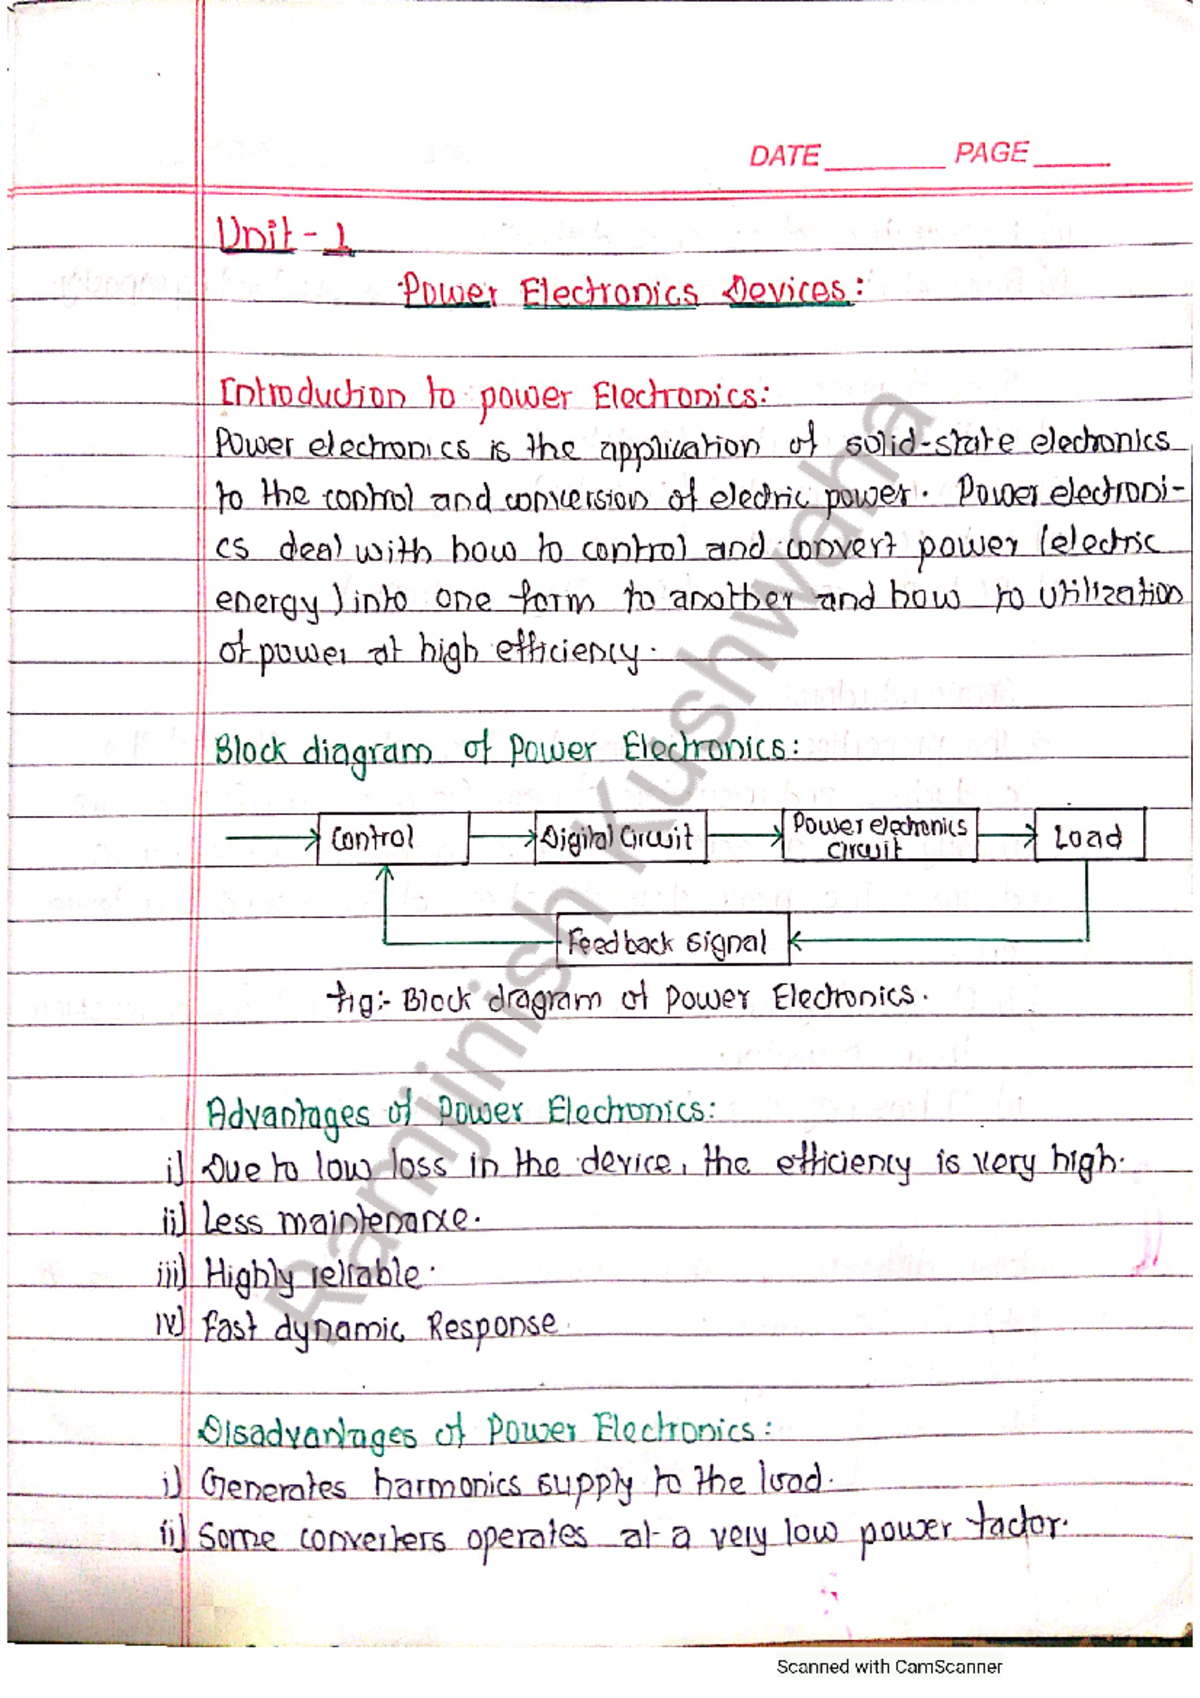 DATE PAGE
Unit - 1
Power Electronics Devices:
Introduction to power Electronics:
Power electronics is the application of solid-state electronics
to the control and conversion of electric power. Power electroni-
cs deal with how to control and convert power (electric
energy) into one form to another and how to utilization
of power at high efficiency.
Block diagram of Power Electronics:
Control
Digital Circuit
Power electronics
circuit
Load
Feedback signal
fig:- Block diagram of Power Electronics.
Advantages of Power Electronics:
i) Due to low loss in the device, the efficiency is very high.
ii) Less maintenance.
iii) Highly reliable.
iv) Fast dynamic Response.
Disadvantages of Power Electronics:
i) Generates harmonics supply to the load.
ii) Some converters operates at a very low power factor.
Ramjinish Kushwaha
Scanned with CamScanner